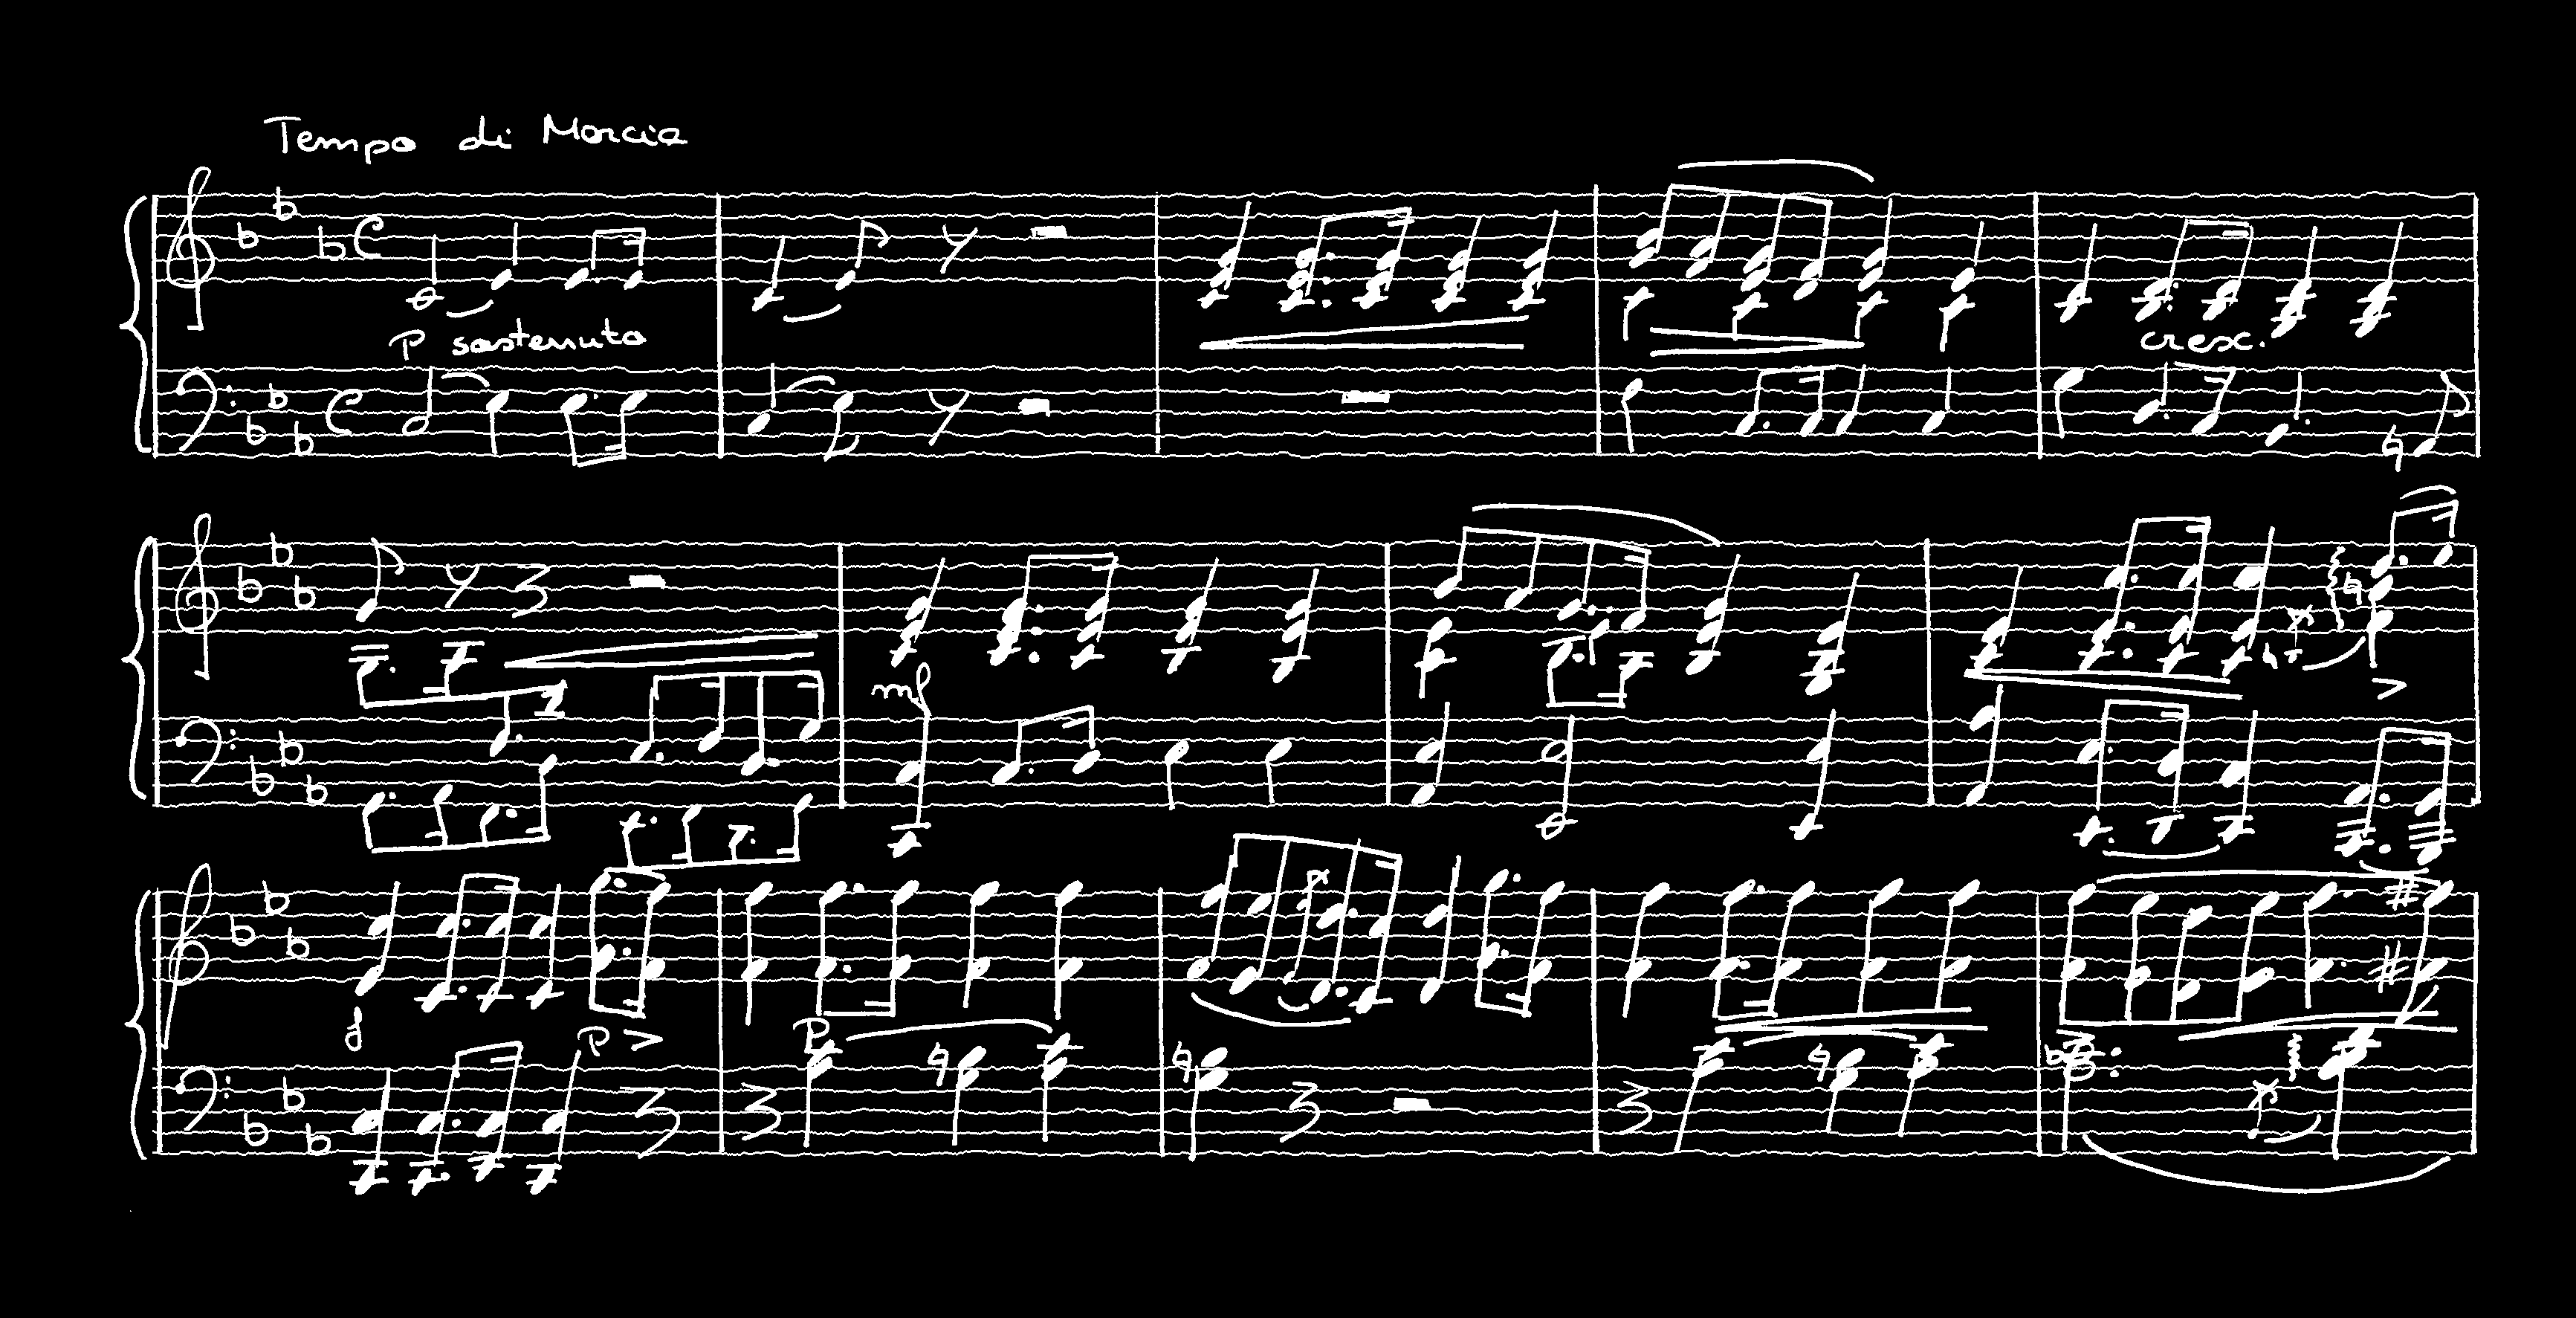 Tempo di Marcia
P sostenuto
cresc.
mf
f
P
P